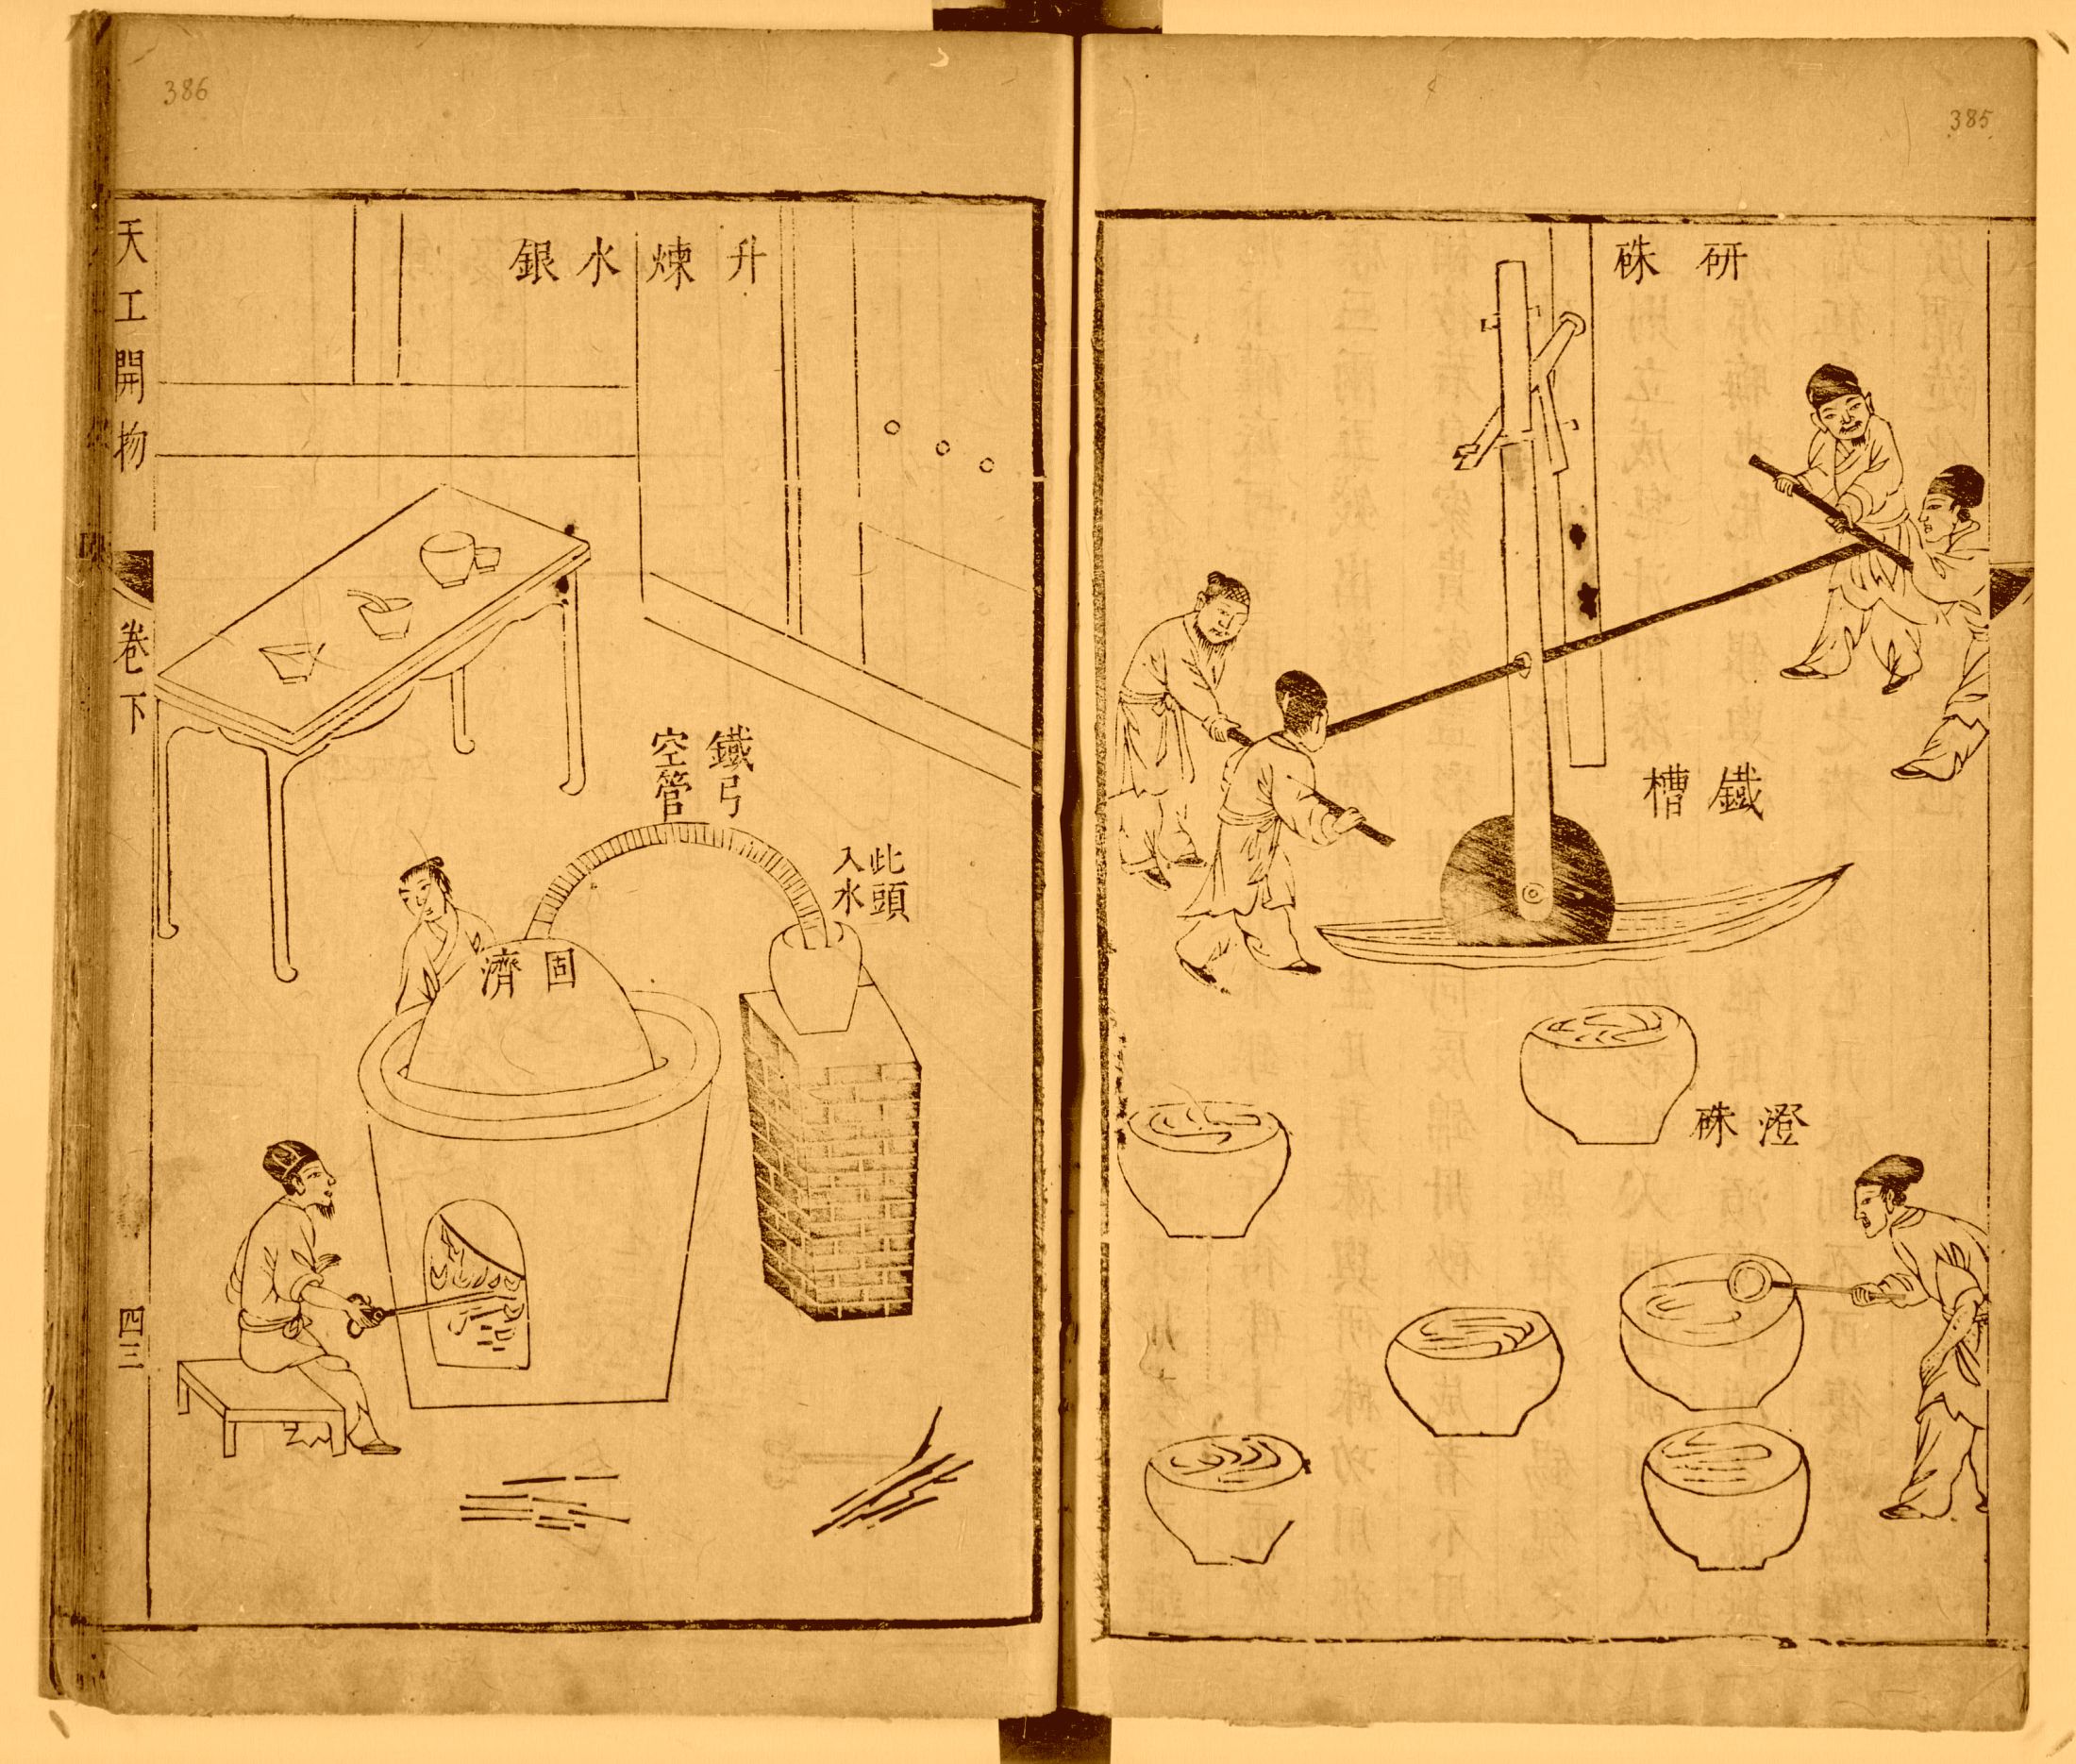 385
研硃
鐵槽
澄硃
386
升煉水銀
鐵弓
空管
此頭
入水
固濟
天工開物
卷下
四三